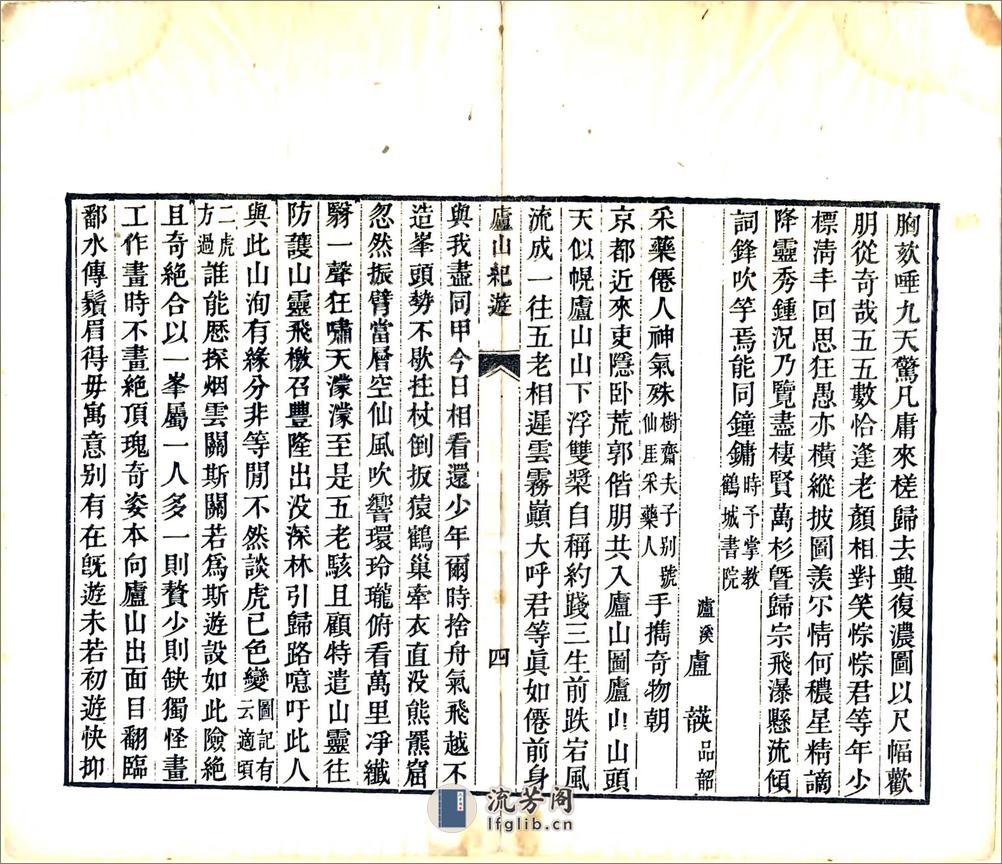 胸欬唾九天驚凡庸來槎歸去興復濃圖以尺幅歡
朋從奇哉五五數恰逢老顏相對笑悰悰君等年少
標淸丰回思狂愚亦橫縱披圖羨尓情何穠星精謫
降靈秀鍾況乃覽盡棲賢萬杉曁歸宗飛瀑懸流傾
詞鋒吹竽焉能同鐘鏞時予掌教鶴城書院
瀘溪盧䕾品韶
采藥僊人神氣殊樹齋夫子别號仙厓采藥人手攜奇物朝
京都近來吏隱卧荒郭偕朋共入廬山圖廬山山頭
天似幌廬山山下浮雙槳自稱約踐三生前跌宕風
流成一往五老相遲雲霧巔大呼君等眞如僊前身
廬山紀遊
四
與我盡同甲今日相看還少年爾時捨舟氣飛越不
造峯頭勢不歇拄杖倒扳猿鶴巢牽衣直没熊羆窟
忽然振臂當層空仙風吹響環玲瓏俯看萬里凈纖
翳一聲狂嘯天濛濛至是五老駭且顧特遣山靈往
防護山靈飛檄召豐隆出没深林引歸路噫吁此人
與此山洵有緣分非等閒不然談虎已色變圖記有云適頃
二虎方過誰能歷探烟雲關斯關若爲斯遊設如此險絶
且奇絶合以一峯屬一人多一則贅少則缺獨怪畫
工作畫時不畫絶頂瑰奇姿本向廬山出面目翻臨
鄱水傳鬚眉得毋寓意别有在旣遊未若初遊快抑
流芳阁
lfglib.cn